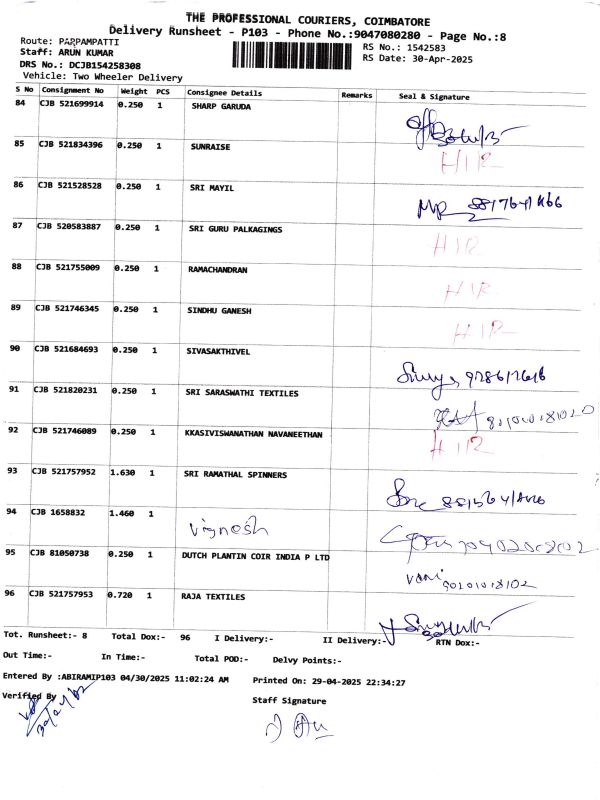 THE PROFESSIONAL COURIERS, COIMBATORE
Delivery Runsheet - P103 - Phone No.:9047080280 - Page No.:8
Route: PAPPAMPATTI
RS No.: 1542583
Staff: ARUN KUMAR
RS Date: 30-Apr-2025
DRS No.: DCJB154258308
Vehicle: Two Wheeler Delivery
S No Consignment No Weight PCS Consignee Details Remarks Seal & Signature
84 CJB 521699914 0.250 1 SHARP GARUDA
85 CJB 521834396 0.250 1 SUNRAISE HIR
86 CJB 521528528 0.250 1 SRI MAYIL
87 CJB 520583887 0.250 1 SRI GURU PALKAGINGS HIR
88 CJB 521755009 0.250 1 RAMACHANDRAN HIR
89 CJB 521746345 0.250 1 SINDHU GANESH HIR
90 CJB 521684693 0.250 1 SIVASAKTHIVEL
91 CJB 521820231 0.250 1 SRI SARASWATHI TEXTILES
92 CJB 521746089 0.250 1 KKASIVISWANATHAN NAVANEETHAN HIR
93 CJB 521757952 1.630 1 SRI RAMATHAL SPINNERS
94 CJB 1658832 1.460 1 Vignesh
95 CJB 81050738 0.250 1 DUTCH PLANTIN COIR INDIA P LTD Vani
96 CJB 521757953 0.720 1 RAJA TEXTILES
Tot. Runsheet:- 8 Total Dox:- 96 I Delivery:- II Delivery:- RTN Dox:-
Out Time:- In Time:- Total POD:- Delvy Points:-
Entered By :ABIRAMIP103 04/30/2025 11:02:24 AM Printed On: 29-04-2025 22:34:27
Verified By
Staff Signature